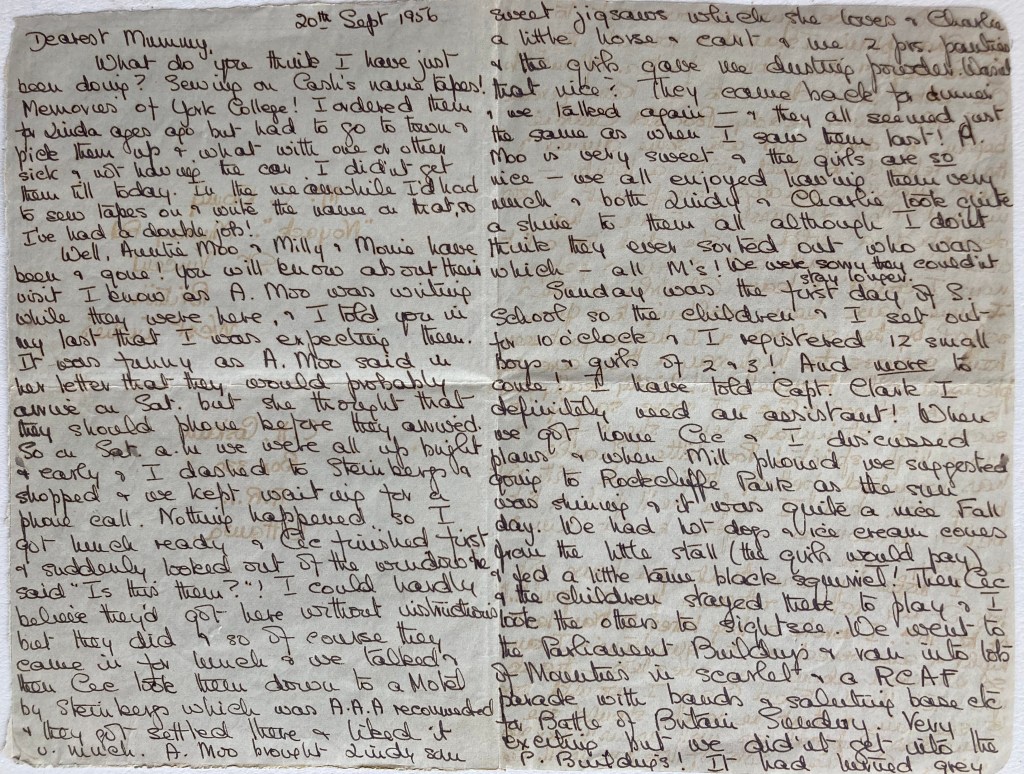 20th Sept 1956
Dearest Mummy,
What do you think I have just
been doing? Sewing on Cash's name tapes!
Memories of York College! I ordered them
for Lindy ages ago but had to go to town &
pick them up & what with one or other
sick & not having the car I didn't get
them till today. In the meanwhile I'd had
to sew tapes on & write the name on that, so
I've had a double job!
Well, Auntie Moo & Milly & Monie have
been & gone! You will know about their
visit I know as A. Moo was writing
while they were here, & I told you in
my last that I was expecting them.
It was funny as A. Moo said in
her letter that they would probably
arrive on Sat. but she thought that
they should phone before they arrived.
So on Sat. a.m we were all up bright
& early & I dashed to Steinbergs &
shopped & we kept waiting for a
phone call. Nothing happened so I
got lunch ready & Cec finished first
& suddenly looked out of the window &
said "Is this them?"! I could hardly
believe they'd got here without instructions
but they did & so of course they
came in for lunch & we talked &
then Cec took them down to a Motel
by Steinbergs which was A.A.A recommended
& they got settled there & liked it
v. much. A. Moo brought Lindy sam
sweet jigsaws which she loves & Charlie
a little horse & cart & me 2 prs. panties
& the girls gave me dusting powder. Wasn't
that nice? They came back for dinner
& we talked again — & they all seemed just
the same as when I saw them last! A.
Moo is very sweet & the girls are so
nice — we all enjoyed having them very
much & both Lindy & Charlie took quite
a shine to them all although I don't
think they ever sorted out who was
which — all M's! We were sorry they couldn't
stay longer.
Sunday was the first day of S.
School so the children & I set out
for 10 o'clock & I registered 12 small
boys & girls of 2 & 3! And more to
come! I have told Capt. Clarke I
definitely need an assistant! When
we got home Cec & I discussed
plans & when Mill phoned we suggested
going to Rockcliffe Park as the sun
was shining & it was quite a nice Fall
day. We had hot dogs & ice cream cones
from the little stall (the girls would pay)
& fed a little tame black squirrel! Then Cec
& the children stayed there to play & I
took the others to sightsee. We went to
the Parliament Buildings & ran into lots
of Mounties in scarlet & a RCAF
parade with bands & saluting base etc
for Battle of Britain Sunday. Very
exciting, but we didn't get into the
P. Buildings! It had turned grey